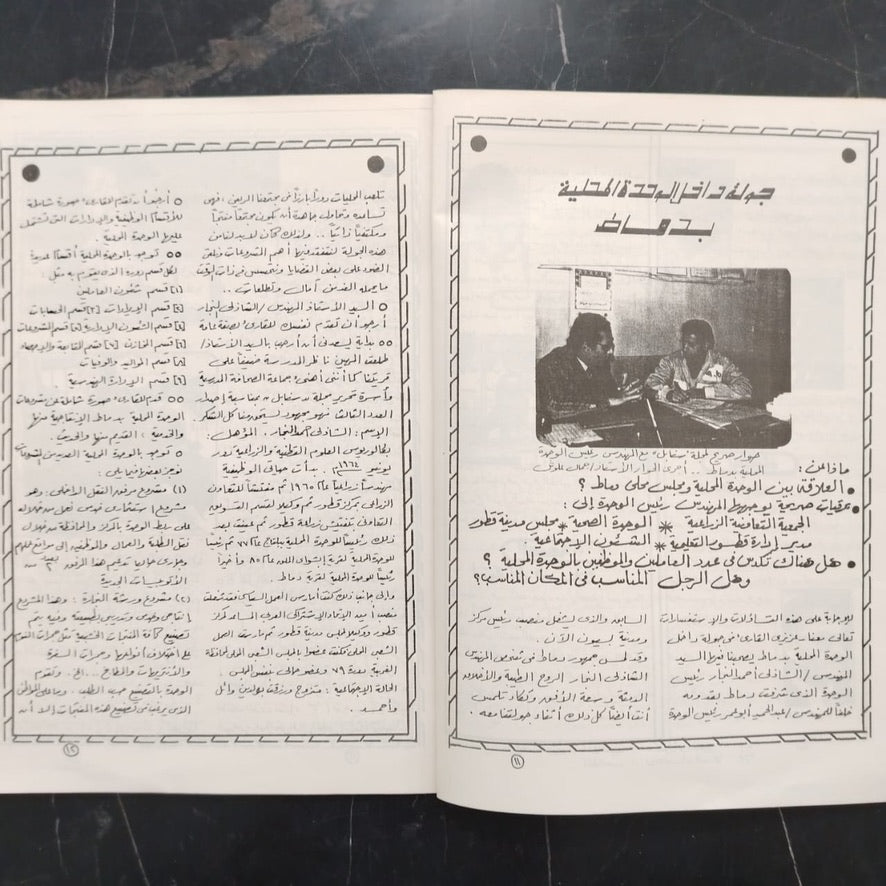 جولة داخل الوحدة المحلية
بدماط
حوار صريح لمجلة سنابل مع المهندس رئيس الوحدة
المحلية بدماط .. أجرى الحوار الأستاذ/جمال
ماذا عن :
• العلاقة بين الوحدة المحلية ومجلس محلى دماط ؟
• صريحة يوجهها المهندس رئيس الوحدة إلى :
الجمعية التعاونية الزراعية * الوحدة الصحية * مجلس مدينة قطور
مدير إدارة قطور التعليمية * الشئون الاجتماعية .
• هل هناك تكدس فى عدد العاملين والموظفين بالوحدة المحلية ؟
وهل الرجل المناسب فى المكان المناسب ؟
للإجابة على هذه التساؤلات والاستفسارات
تعالى معنا عزيزى القارئ فى جولة داخل
الوحدة المحلية بدماط يصحبنا فيها السيد
المهندس/الشاذلى أحمد النجار رئيس
الوحدة الذى شرفت دماط بقدومه
خلفاً للمهندس/عبدالحميد أبوعمر رئيس الوحدة
السابق والذى يشغل منصب رئيس مركز
ومدينة بسيون الآن .
وقد لمس جمهور دماط فى شخص المهندس
الشاذلى النجار الروح الطيبة والأخلاق
الدمثة وسعة الأفق وتكاد تلمس
أنت أيضاً كل ذلك أثناء جولتنا معه .
١١
تلعب المحليات دوراً بارزاً فى مجتمعنا الريفى فهى
تساعده وتحاول جاهدة أن تكون مجتمعاً منتجاً
ومكتفياً ذاتياً .. ولذلك كان لابد لنا من
هذه الجولة لنتفقد فيها أهم المشروعات ونلقى
الضوء على بعض القضايا ونتحسس فى ذات الوقت
ما يحمله الغد من آمال وتطلعات ..
○ السيد الأستاذ المهندس/الشاذلى النجار
أرجو أن تقدم نفسك للقارئ بصفة عامة
○○ بداية يسعدنى أن أرحب بالسيد الأستاذ/
طلعت ناظر المدرسة ضيفاً على
قريتنا كما أننى أهنئ جماعة الصحافة المدرسية
وأسرة تحرير مجلة سنابل بمناسبة إصدار
العدد الثالث فهو مجهود يستحق منا كل الشكر
الإسم : الشاذلى أحمد النجار . المؤهل :
بكالوريوس العلوم القطنية والزراعية دور
يونيو ١٩٦٤م . بدأت حياتى الوظيفية
مهندساً زراعياً عام ١٩٦٥ ثم مفتشاً للتعاون
الزراعى بمركز قطور ثم وكيلا لقسم التسويق
التعاونى بتفتيش زراعة قطور ثم عينت بعد
ذلك رئيساً للوحدة المحلية ببلتاج عام ٧٧ ثم رئيساً
للوحدة المحلية لقرية إبشواى الملق عام ٨٠ وأخيراً
رئيساً للوحدة المحلية لقرية دماط .
وإلى جانب ذلك كنت أمارس العمل السياسى فقد شغلت
منصب أمين الإتحاد الإشتراكى العربى المساعد لمركز
قطور . ووكيلا لمجلس مدينة قطور ثم مارست العمل
الشعبى المحلى فكنت عضواً بالمجلس الشعبى المحلى لمحافظة
الغربية لدورة ٧٩ وعضو حالى بنفس المجلس
الحالة الإجتماعية : متزوج ورزقت بولدين وائل
وأحمد .
○ أرجو أن تقدم للقارئ صورة شاملة
للأقسام الوظيفية والإدارات التى تشتمل
عليها الوحدة المحلية .
○○ توجد بالوحدة المحلية أقسام عديدة
لكل قسم دوره الذى يقوم به مثل :
[١] قسم شئون العاملين
[٢] قسم الإيرادات [٣] قسم الحسابات
[٤] قسم الشئون الإدارية [٥] قسم المشروعات
[٦] قسم المخازن [٧] قسم المتابعة والإحصاء
[٨] قسم المواليد والوفيات
[٩] قسم الإدارة الهندسية .
○○ قدم للقارئ صورة شاملة عن مشروعات
الوحدة المحلية بدماط الإنتاجية منها
والخدمية ؛ القديم منها والحديث .
○ توجد بالوحدة المحلية العديد من المشروعات
نوجز بعضها فيما يلى :
(١) مشروع مرفق النقل الداخلى : وهو
مشروع استثمارى خدمى نعمل من خلاله
على ربط الوحدة بالمركز والمحافظة من خلال
نقل الطلبة والعمال والموظفين إلى مواقع عملهم
وجارى حاليا تدعيم هذا المرفق من
الأتوبيسات الجديدة
(٢) مشروع ورشة النجارة : وهذا المشروع
إنتاجى وخدمى وتدريبى بطبيعته وفيه يتم
تصنيع كافة المنتجات الخشبية مثل حجرات النوم
على اختلاف أنواعها وحجرات السفرة
والأنتريهات والمطابخ ... إلخ . وتقوم
الوحدة بالتصنيع حسب الطلب . وما على المواطن
الذى يرغب فى تصنيع هذه المنتجات إلا أن
١٢